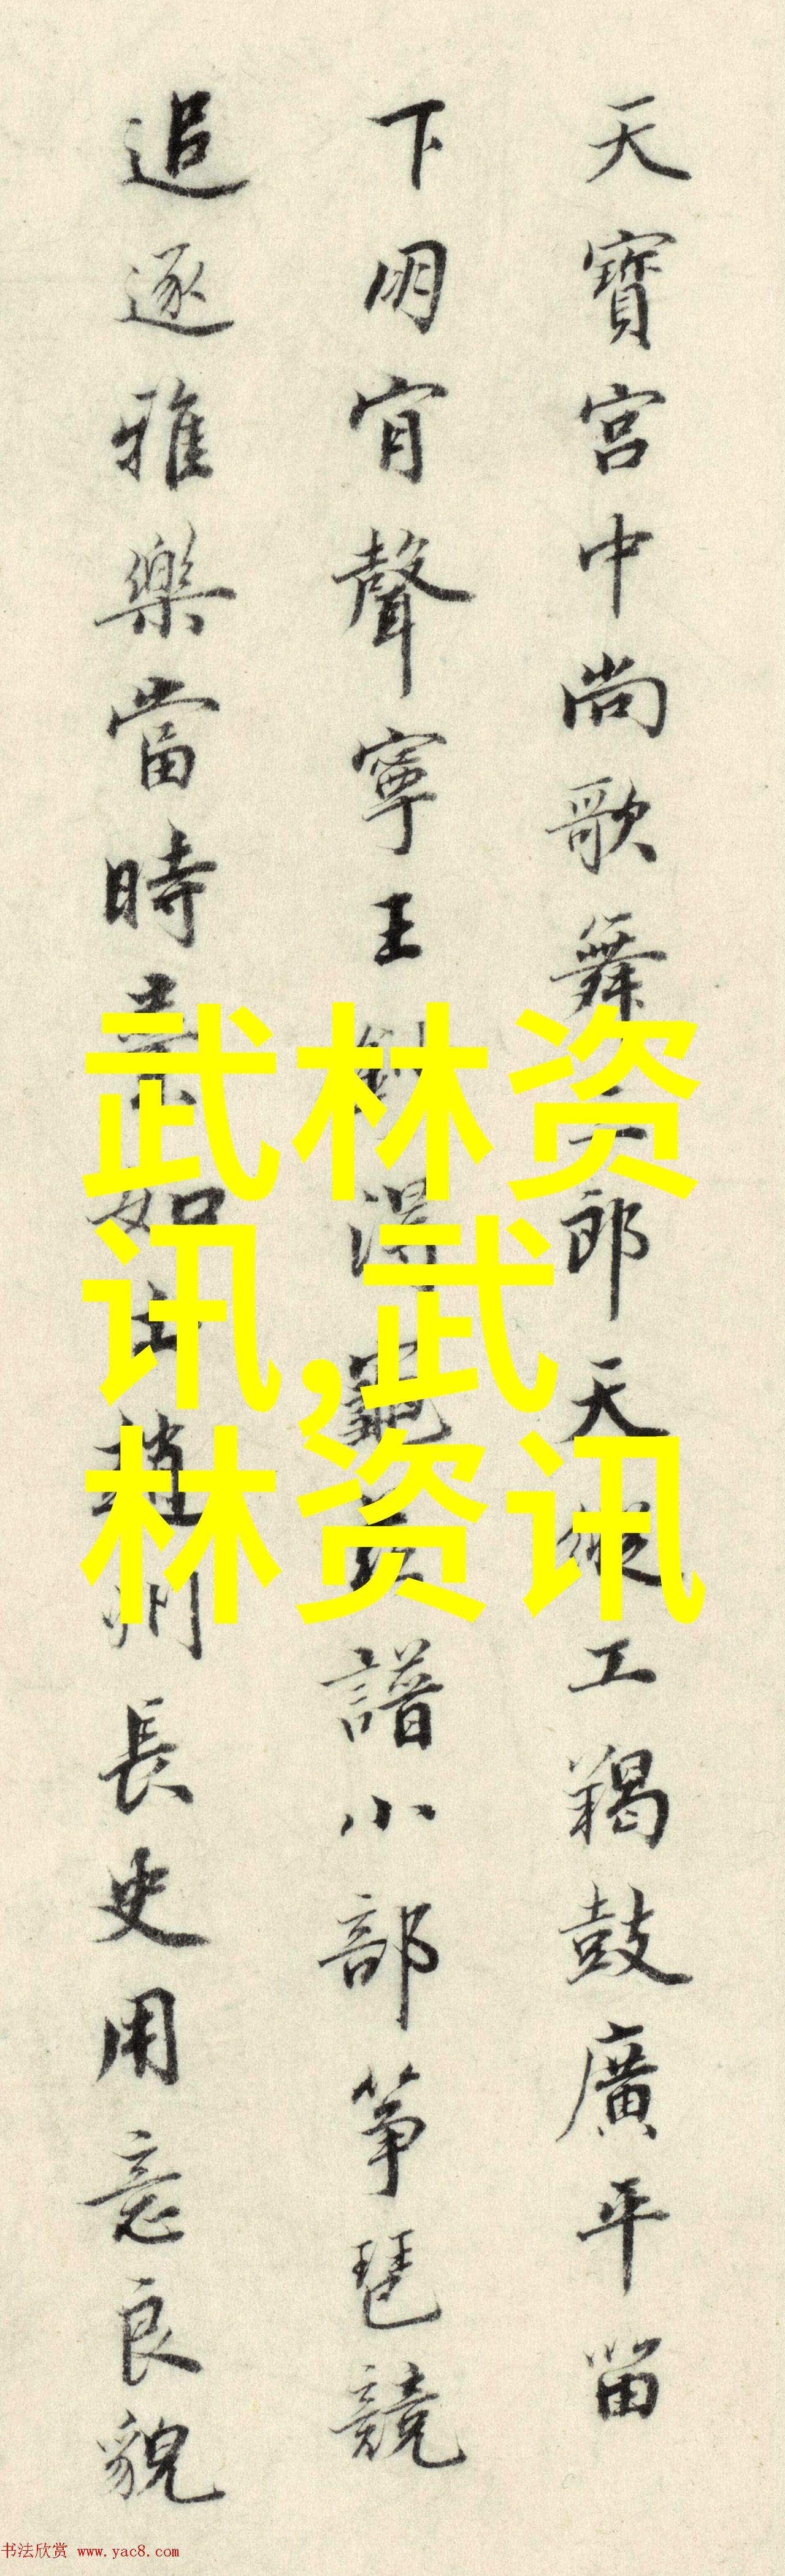 天寶宮中尚歌舞三郎天縱工羯鼓廣平留
下朋肎聲寧王得龜茲譜小部箏琶競
追逐雅樂當時棄如土趙州長史用意良貌
武林资
讯,武
林资讯
书法欣赏 www.yac8.com